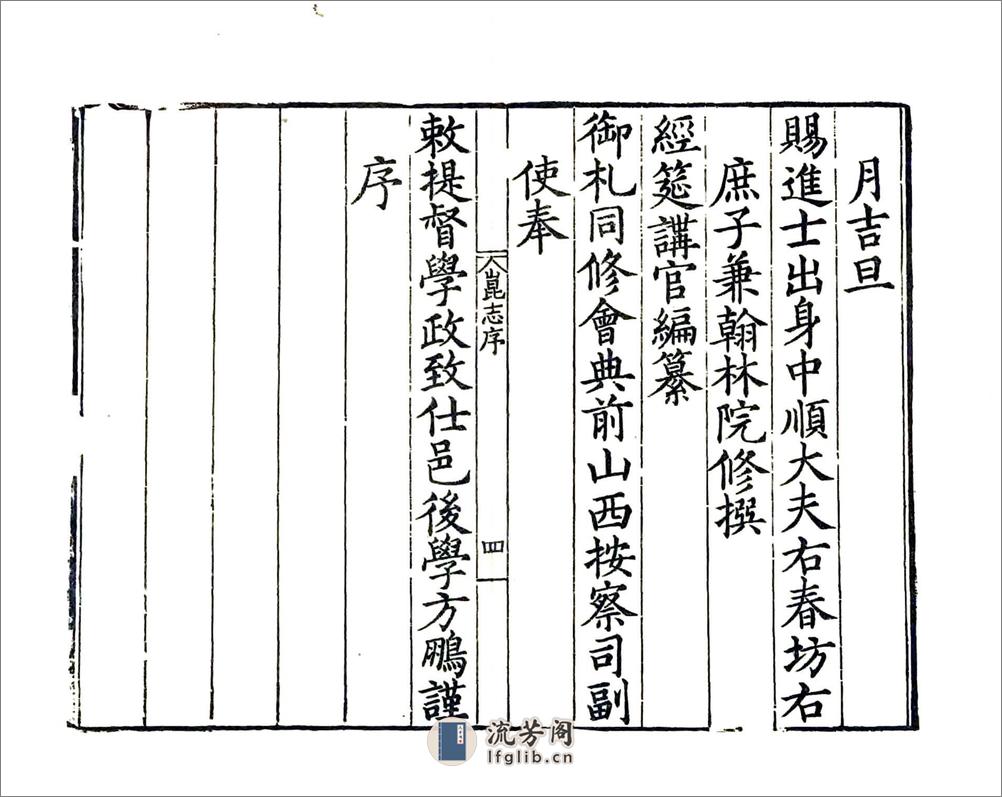 月吉旦
賜進士出身中順大夫右春坊右
庶子兼翰林院修撰
經筵講官編纂
御札同修會典前山西按察司副
使奉
崑志序
四
敕提督學政致仕邑後學方鵬謹
序
流芳阁
lfglib.cn